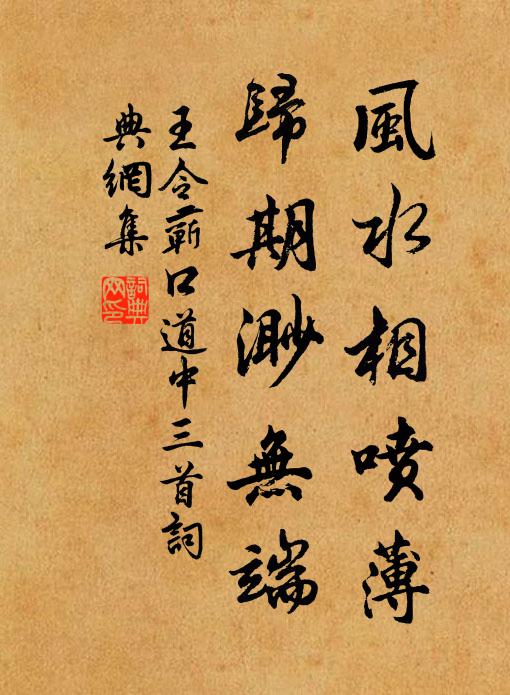 風水相噴薄
歸期渺無端
王令蘄口道中三首詞
典網集
詞典
网印